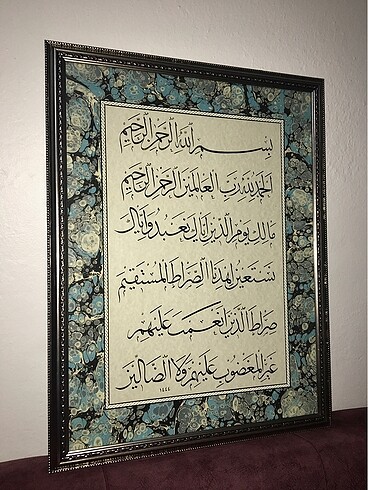 بِسْمِ اللّٰهِ الرَّحْمٰنِ الرَّحِيمِ
الْحَمْدُ لِلّٰهِ رَبِّ الْعَالَمِينَ الرَّحْمٰنِ الرَّحِيمِ
مَالِكِ يَوْمِ الدِّينِ إِيَّاكَ نَعْبُدُ وَإِيَّاكَ
نَسْتَعِينُ اهْدِنَا الصِّرَاطَ الْمُسْتَقِيمَ
صِرَاطَ الَّذِينَ أَنْعَمْتَ عَلَيْهِمْ
غَيْرِ الْمَغْضُوبِ عَلَيْهِمْ وَلَا الضَّالِّينَ
١٤٤٤